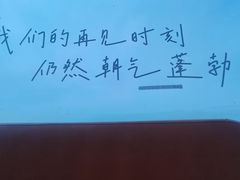 我们的再见时刻
仍然朝气蓬勃